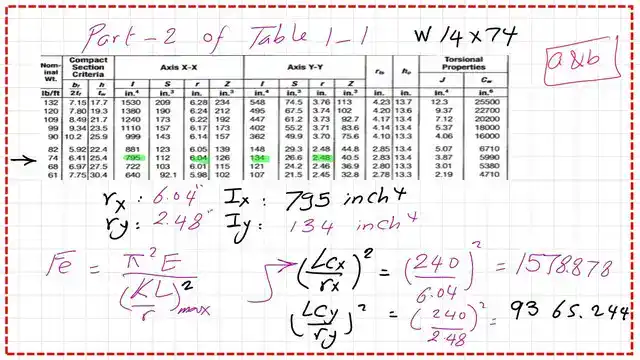 Part-2 of Table 1-1 W 14x74
a&b
Nom-inal Wt. Compact Section Criteria Axis X-X Axis Y-Y rts ho Torsional Properties
bf/2tf h/tw I S r Z I S r Z J Cw
lb/ft in.4 in.3 in. in.3 in.4 in.3 in. in.3 in. in. in.4 in.6
132 7.15 17.7 1530 209 6.28 234 548 74.5 3.76 113 4.23 13.7 12.3 25500
120 7.80 19.3 1380 190 6.24 212 495 67.5 3.74 102 4.20 13.6 9.37 22700
109 8.49 21.7 1240 173 6.22 192 447 61.2 3.73 92.7 4.17 13.5 7.12 20200
99 9.34 23.5 1110 157 6.17 173 402 55.2 3.71 83.6 4.14 13.4 5.37 18000
90 10.2 25.9 999 143 6.14 157 362 49.9 3.70 75.6 4.10 13.3 4.06 16000
82 5.92 22.4 881 123 6.05 139 148 29.3 2.48 44.8 2.85 13.4 5.07 6710
→ 74 6.41 25.4 795 112 6.04 126 134 26.6 2.48 40.5 2.83 13.4 3.87 5990
68 6.97 27.5 722 103 6.01 115 121 24.2 2.46 36.9 2.80 13.3 3.01 5380
61 7.75 30.4 640 92.1 5.98 102 107 21.5 2.45 32.8 2.78 13.3 2.19 4710
rx : 6.04" Ix : 795 inch4
ry : 2.48" Iy : 134 inch4
Fe = π²E/(KL/r)²max (Lcx/rx)² = (240/6.04)² = 1578.878
(Lcy/ry)² = (240/2.48)² = 9365.244